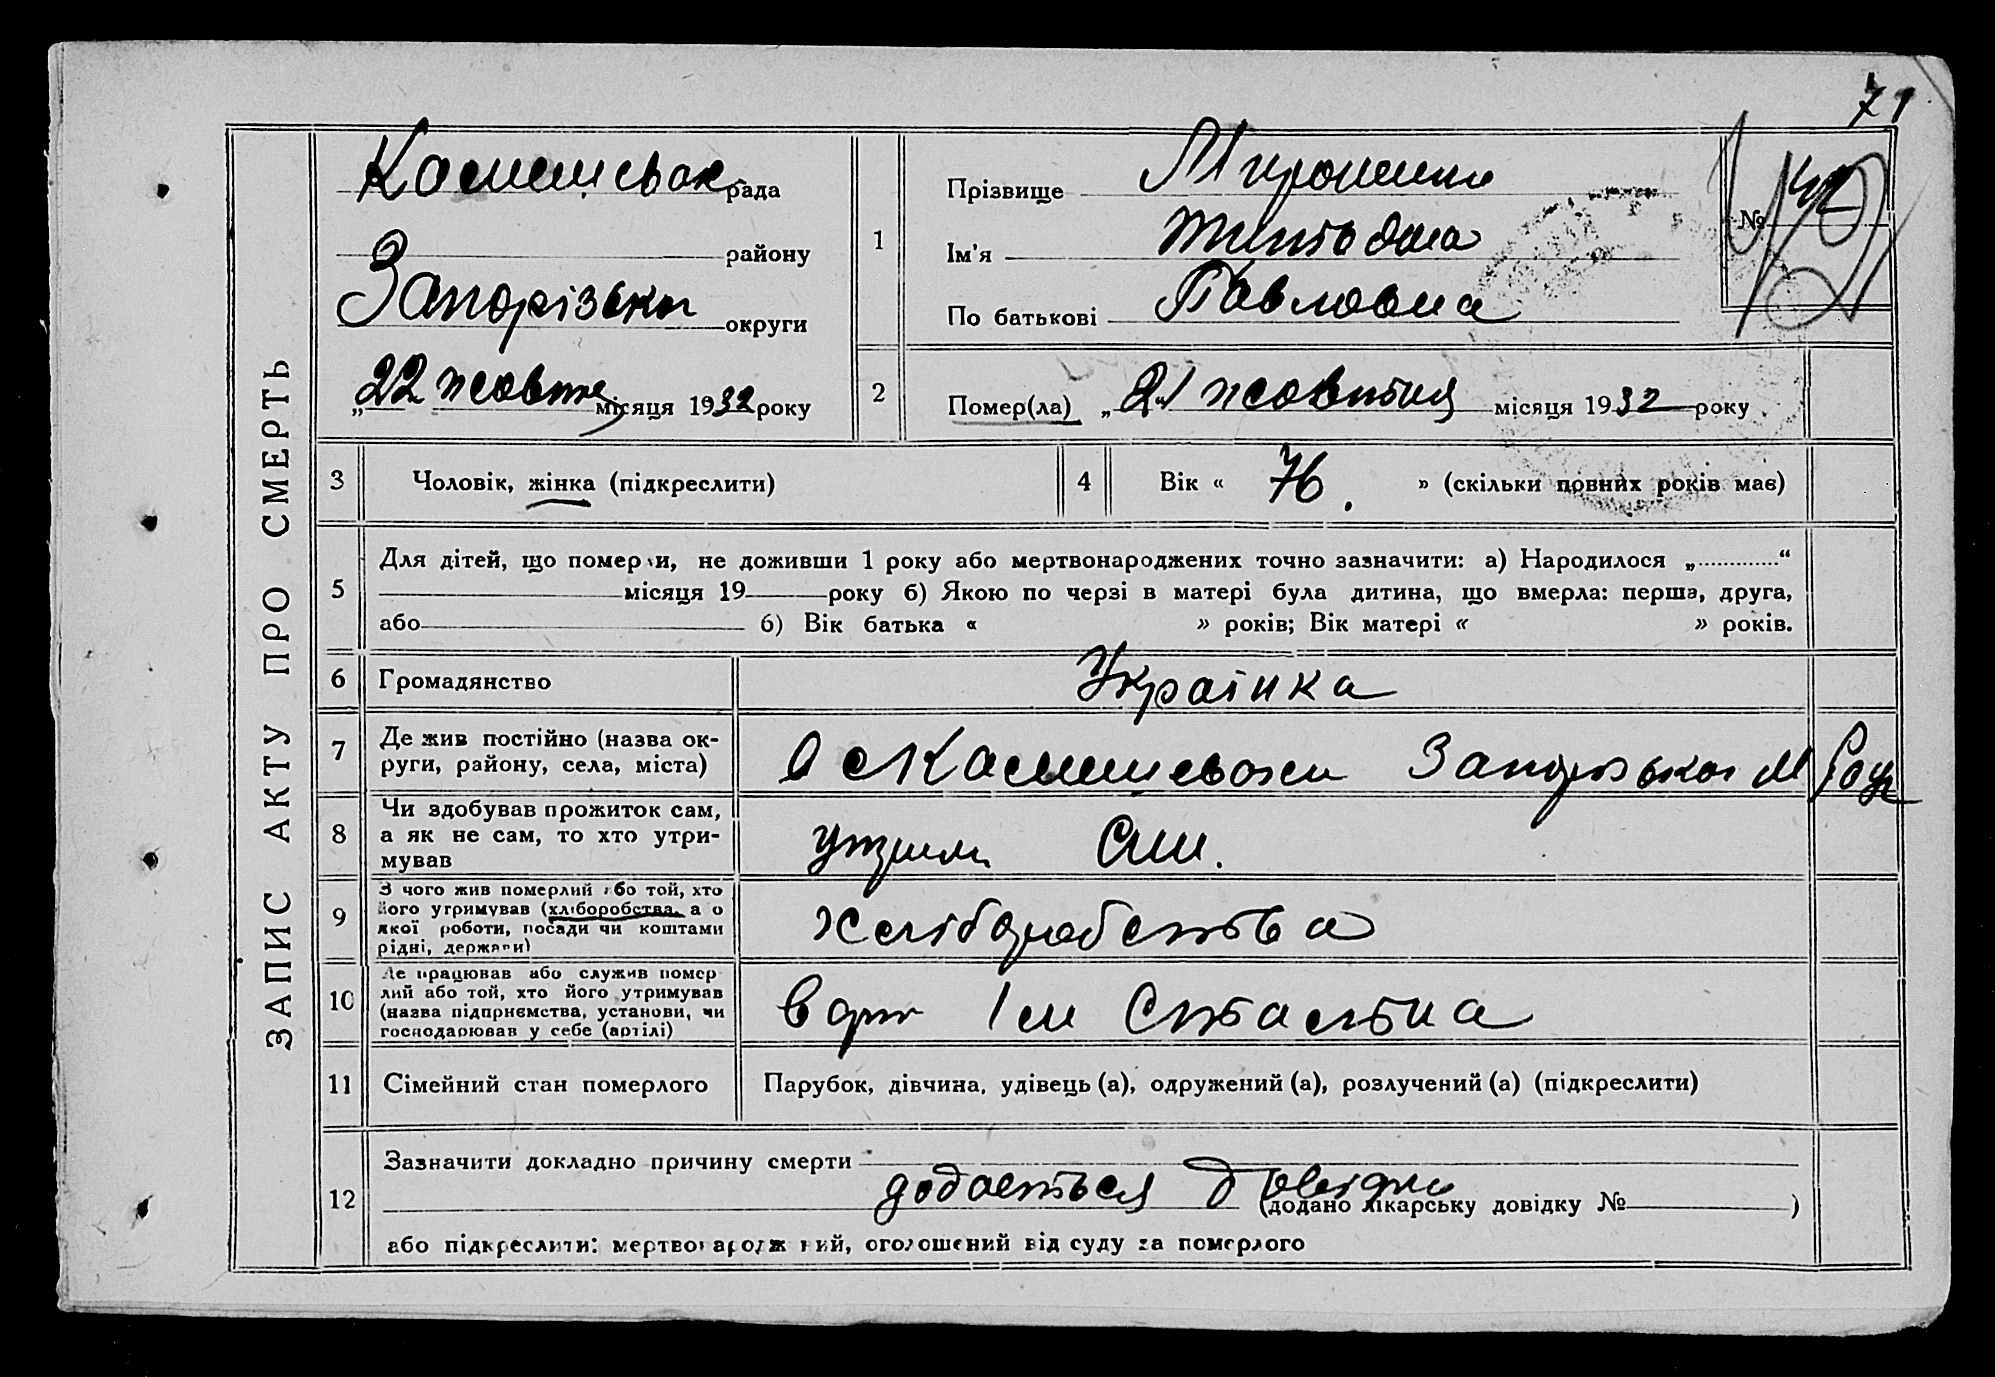 71
ЗАПИС АКТУ ПРО СМЕРТЬ
рада
району
Запорізьки округи
„22 жовтня місяця 1932 року
1
Прізвище
Ім'я
По батькові Павловна
№
2
Помер(ла) „21 жовтня місяця 1932 року
3
Чоловік, жінка (підкреслити)
4
Вік « 76. » (скільки повних років має)
5
Для дітей, що померли, не доживши 1 року або мертвонароджених точно зазначити: а) Народилося „ “
місяця 19 року б) Якою по черзі в матері була дитина, що вмерла: перша, друга,
або б) Вік батька « » років; Вік матері « » років.
6
Громадянство
Українка
7
Де жив постійно (назва ок-
руги, району, села, міста)
Запорізької М Рад
8
Чи здобував прожиток сам,
а як не сам, то хто утри-
мував
Син.
9
З чого жив померлий або той, хто
його утримував (хліборобства, а о
якої роботи, посади чи коштами
рідні, держави)
хліборобства
10
Де працював або служив помер
лий або той, хто його утримував
(назва підприємства, установи, чи
господарював у себе (артілі)
в арт Ім Сталіна
11
Сімейний стан померлого
Парубок, дівчина, удівець (а), одружений (а), розлучений (а) (підкреслити)
12
Зазначити докладно причину смерти
додається довідка (додано лікарську довідку № )
або підкреслити: мертвонароджений, оголошений від суду за померлого